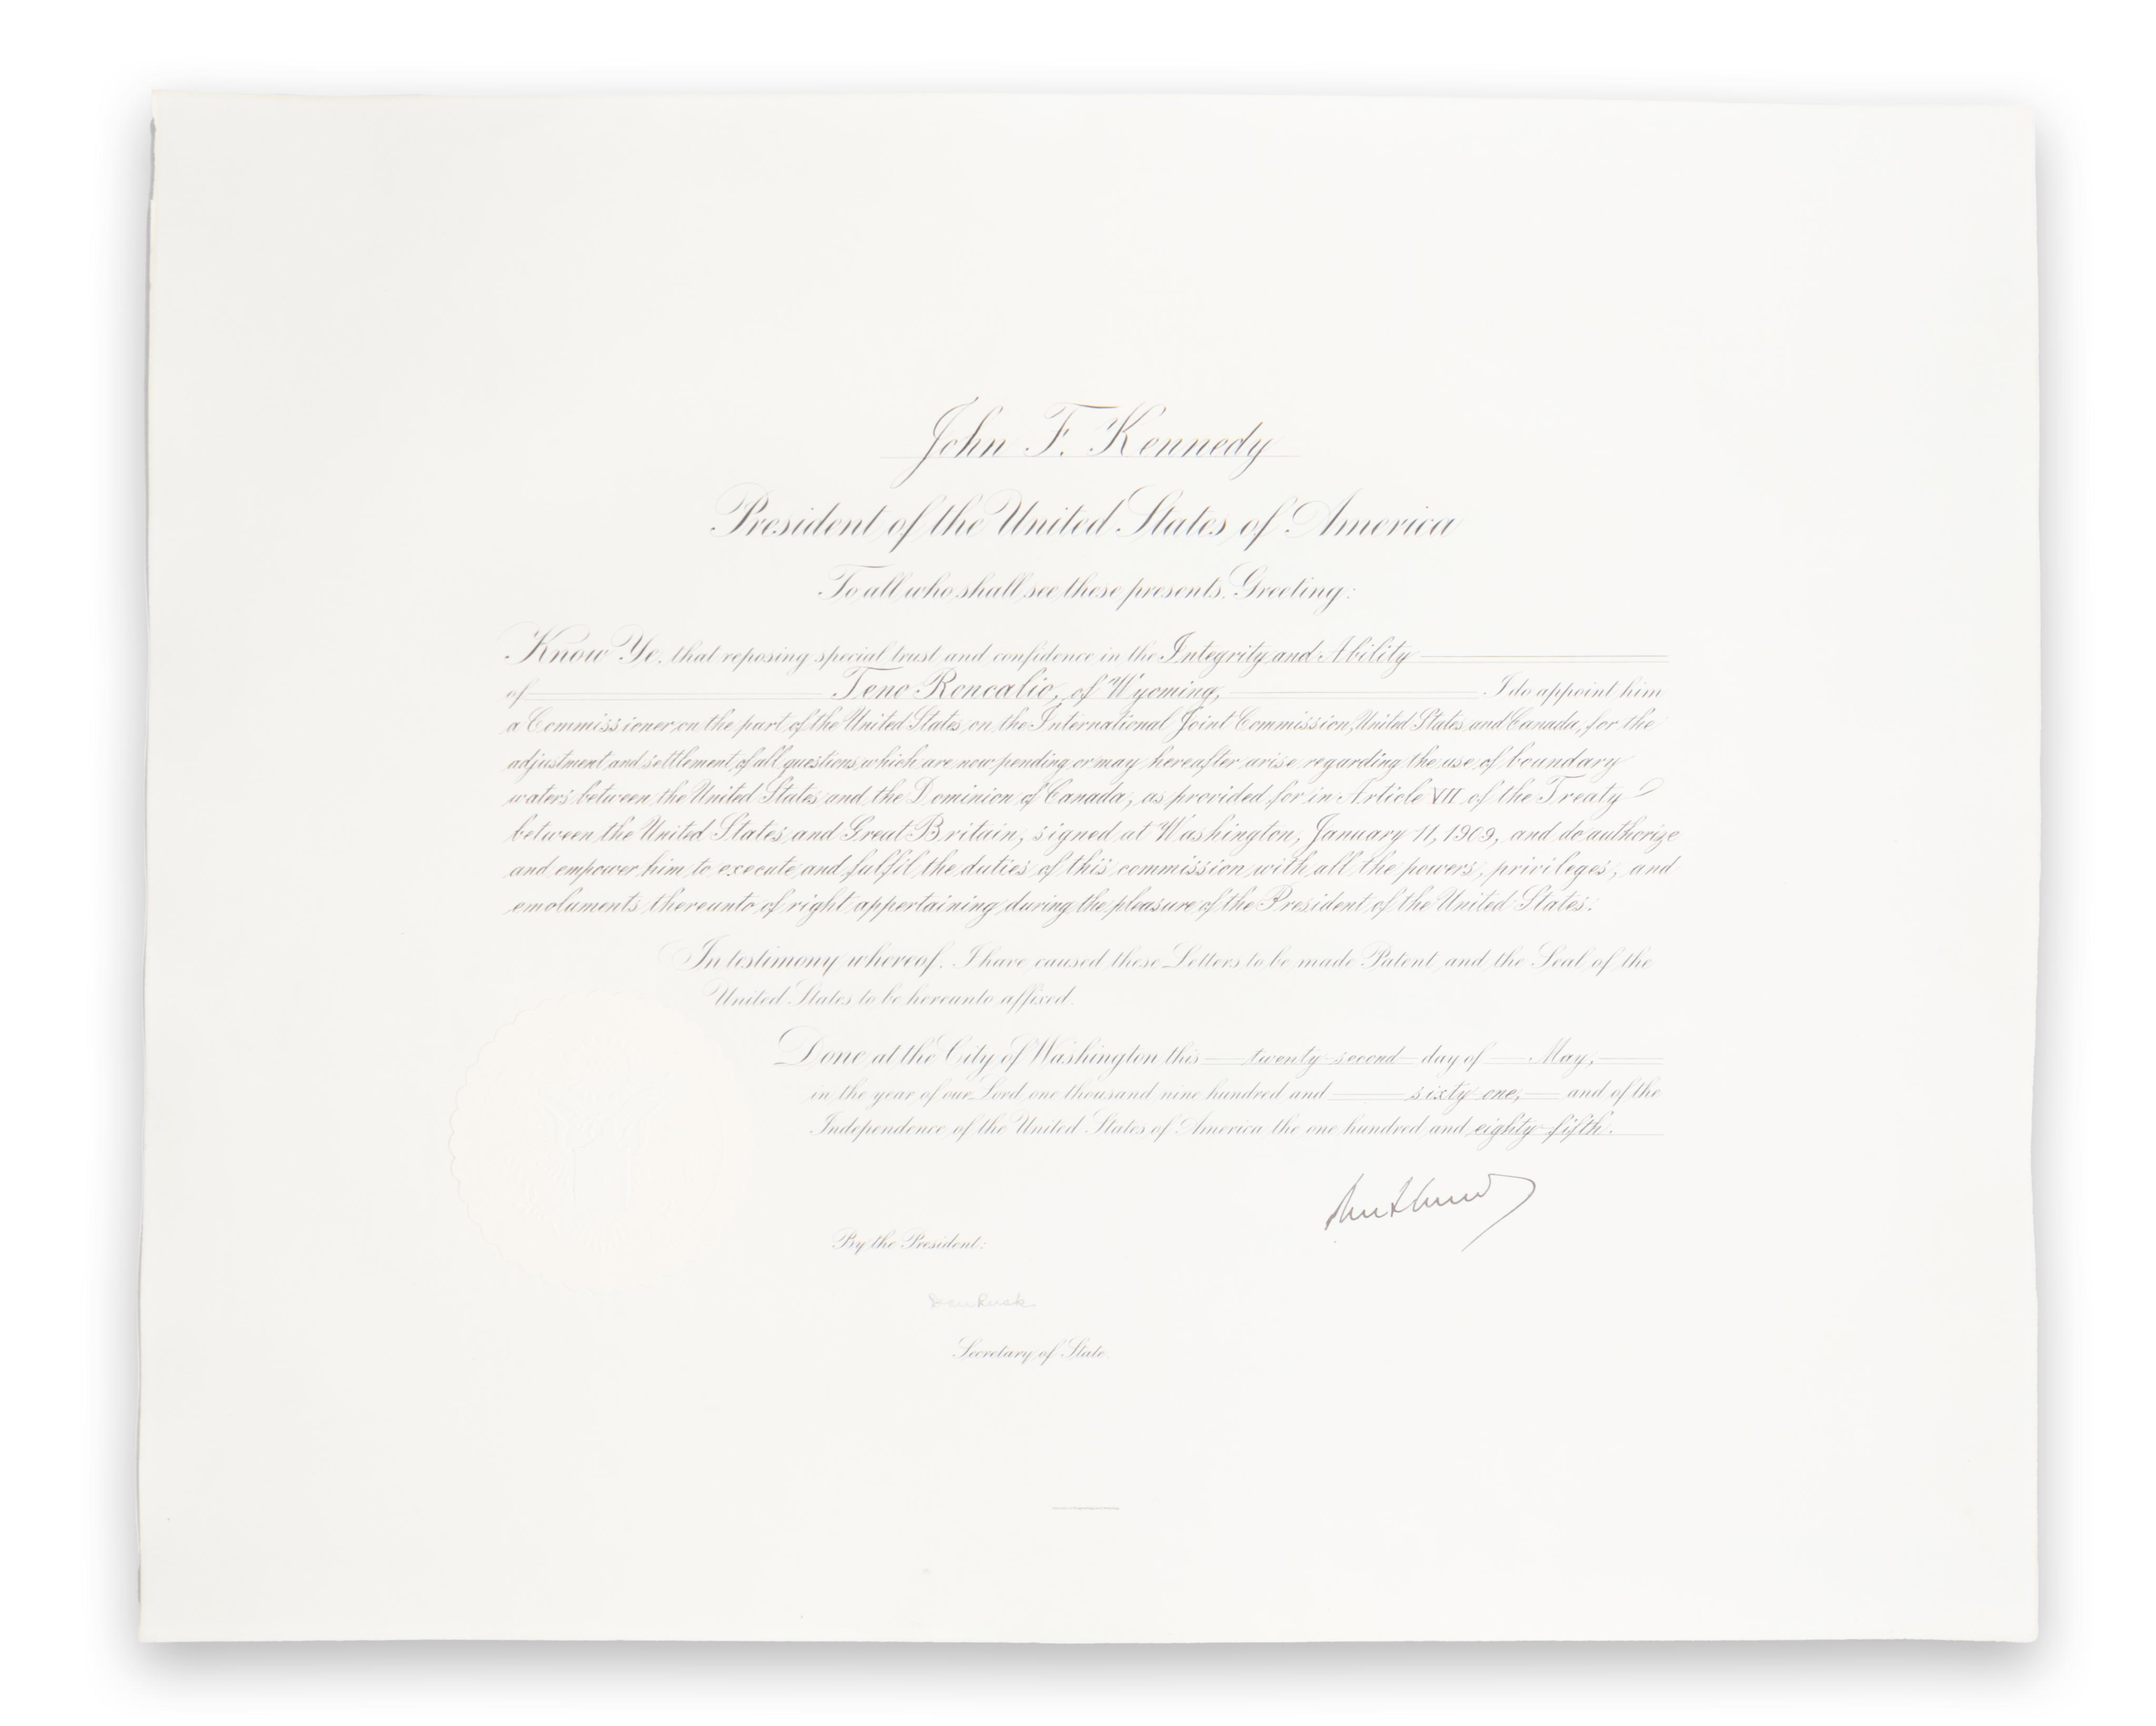 John F. Kennedy
President of the United States of America
To all who shall see these presents, Greeting:
Know Ye, that reposing special trust and confidence in the Integrity and Ability
of Teno Roncalio, of Wyoming, I do appoint him
a Commissioner on the part of the United States on the International Joint Commission, United States and Canada, for the
adjustment and settlement of all questions which are now pending or may hereafter arise regarding the use of boundary
waters between the United States and the Dominion of Canada, as provided for in Article VII of the Treaty
between the United States and Great Britain, signed at Washington, January 11, 1909, and do authorize
and empower him to execute and fulfil the duties of this commission with all the powers, privileges, and
emoluments thereunto of right appertaining during the pleasure of the President of the United States.
In testimony whereof, I have caused these Letters to be made Patent and the Seal of the
United States to be hereunto affixed.
Done at the City of Washington this twenty-second day of May,
in the year of our Lord one thousand nine hundred and sixty-one, and of the
Independence of the United States of America the one hundred and eighty-fifth.
By the President:
Dean Rusk
Secretary of State